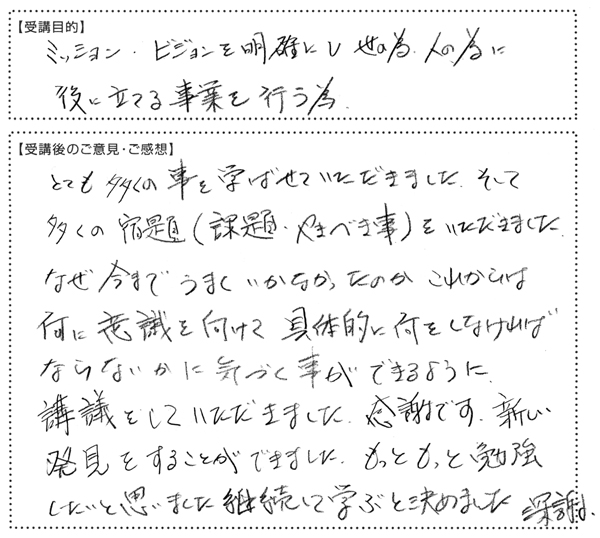 【受講目的】
ミッション・ビジョンを明確にし 世の為.人の為に
役に立てる事業を行う為.
【受講後のご意見・ご感想】
とても多くの事を学ばせていただきました.そして
多くの宿題(課題・やるべき事)をいただきました.
なぜ今までうまくいかなかったのか これからは
何に意識を向けて 具体的に何をしなければ
ならないかに気づく事ができるように.
講議をしていただきました.感謝です.新しい
発見をすることができました.もっともっと勉強
したいと思いました 継続して学ぶと決めました 深謝.